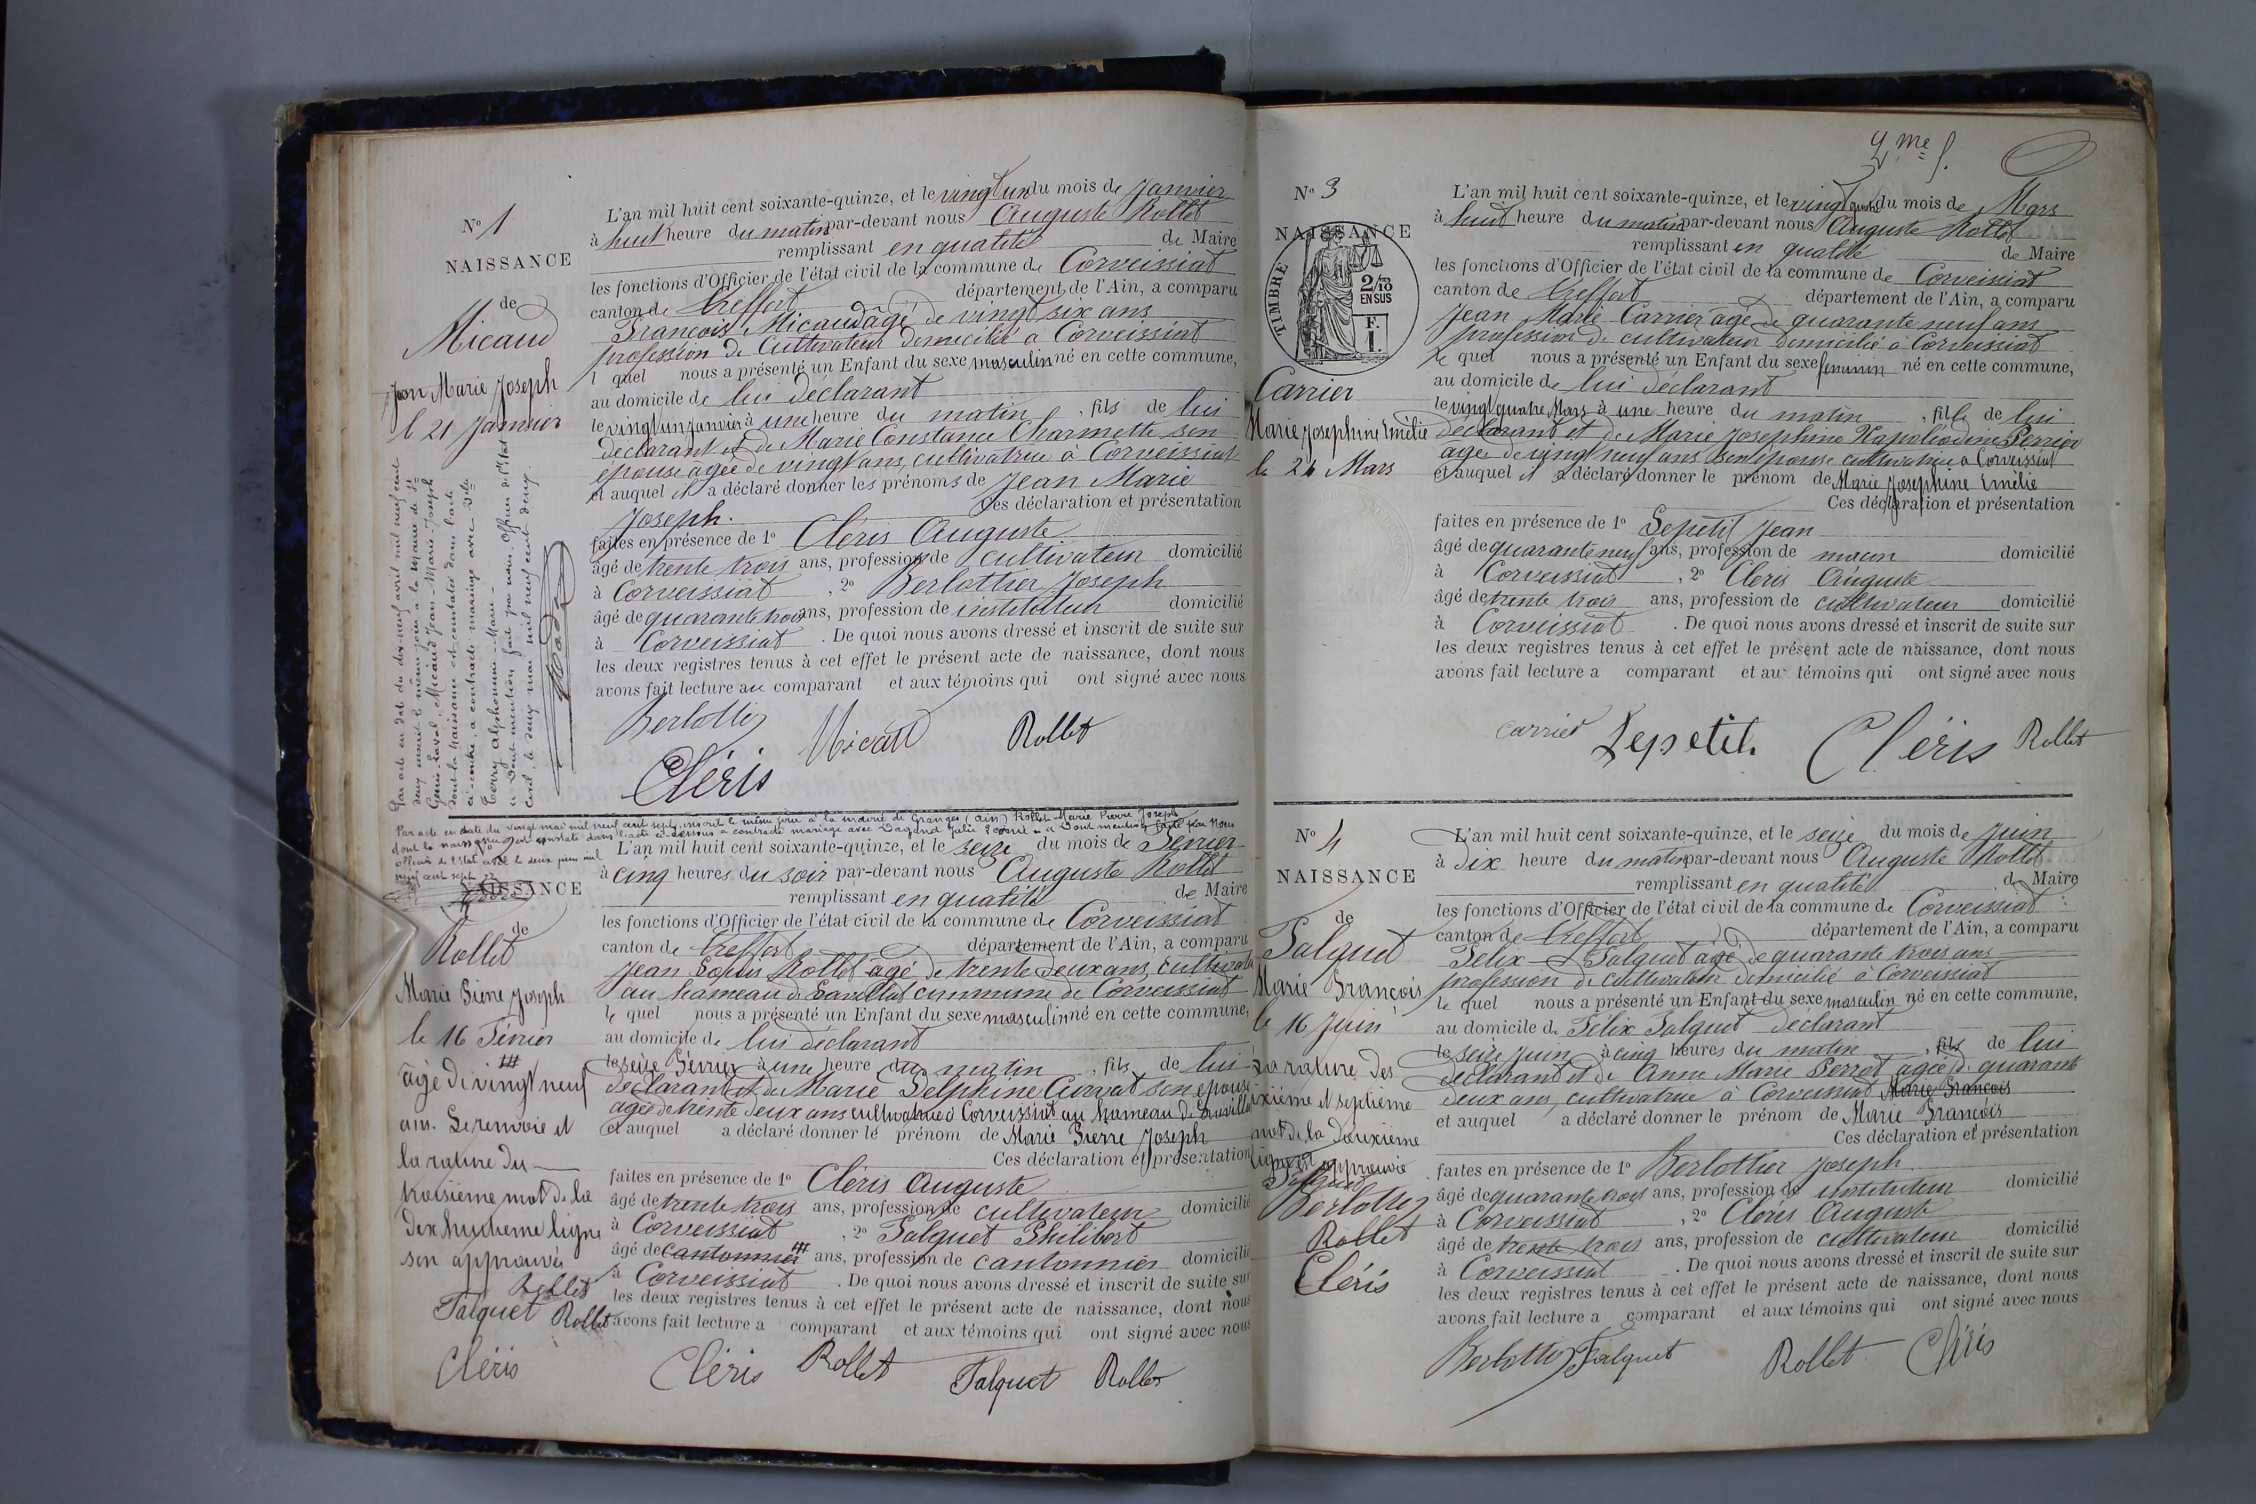 N° 1
NAISSANCE
de
Micaud
Jean Marie Joseph
le 21 Janvier
Par acte en date du dix-neuf avril mil neuf cent
deux inscrit le même jour à la mairie de St
Genis-Laval, Micaud Jean-Marie-Joseph
dont la naissance est constatée dans l'acte
ci-contre, a contracté mariage avec Dlle
Terry Alphonsine-Marie-
Dont mention faite par nous, Officier de l'Etat
civil, le deux mai mil neuf cent deux.
L'an mil huit cent soixante-quinze, et le vingt un du mois de Janvier
à huit heure du matin par-devant nous Auguste Rollet
remplissant en qualité de Maire
les fonctions d'Officier de l'état civil de la commune de Corveissiat
canton de Treffort département de l'Ain, a comparu
François Micaud âgé de vingt six ans
profession de Cultivateur domicilié à Corveissiat
l quel nous a présenté un Enfant du sexe masculin né en cette commune,
au domicile de lui déclarant
le vingt un janvier à une heure du matin, fils de lui
déclarant et de Marie Constance Charmette son
épouse agée de vingt ans, cultivatrice à Corveissiat
et auquel il a déclaré donner les prénoms de Jean Marie
Joseph. Ces déclaration et présentation
faites en présence de 1° Cléris Auguste
âgé de trente trois ans, profession de cultivateur domicilié
à Corveissiat, 2° Berlottier Joseph
âgé de quarante trois ans, profession de instituteur domicilié
à Corveissiat. De quoi nous avons dressé et inscrit de suite sur
les deux registres tenus à cet effet le présent acte de naissance, dont nous
avons fait lecture au comparant et aux témoins qui ont signé avec nous
Berlottier Micaud Rollet
Cléris
Par acte en date du vingt mai mil neuf cent sept, inscrit le même jour à la mairie de Granges (Ain) Rollet Marie Pierre Joseph
dont la naissance est constatée dans l'acte ci-dessous a contracté mariage avec Dagand Julie Léonie - Dont mention faite par Nous
officier de l'Etat civil le deux juin mil
neuf cent sept
NAISSANCE
de
Rollet
Marie Pierre Joseph
le 16 Février
âgé de vingt neuf
ans. Le renvoie et
la rature du
troisième mot de la
dix huitieme ligne
son approuvés
Rollet
Falquet Rollet
Cléris
L'an mil huit cent soixante-quinze, et le seize du mois de Février
à cinq heures du soir par-devant nous Auguste Rollet
remplissant en qualité de Maire
les fonctions d'Officier de l'état civil de la commune de Corveissiat
canton de Treffort département de l'Ain, a comparu
Jean Louis Rollet âgé de trente deux ans, cultivateur
au hameau de commune de Corveissiat
le quel nous a présenté un Enfant du sexe masculin né en cette commune,
au domicile de lui déclarant
le seize Février à une heure du matin, fils de lui
déclarant et de Marie Delphine son épouse
agée de trente deux ans cultivatrice à Corveissiat au hameau de
et auquel a déclaré donner le prénom de Marie Pierre Joseph
Ces déclaration et présentation
faites en présence de 1° Cléris Auguste
âgé de trente trois ans, profession de cultivateur domicilié
à Corveissiat, 2° Falquet Philibert
âgé de cantonnier ans, profession de cantonnier domicilié
à Corveissiat. De quoi nous avons dressé et inscrit de suite sur
les deux registres tenus à cet effet le présent acte de naissance, dont nous
avons fait lecture a comparant et aux témoins qui ont signé avec nous
Cléris Rollet Falquet Rollet
2me f.
N° 3
NAISSANCE
TIMBRE
2/10
EN SUS
F.
1.
Carrier
Marie Josephine Emélie
le 24 Mars
L'an mil huit cent soixante-quinze, et le vingt quatre du mois de Mars
à huit heure du matin par-devant nous Auguste Rollet
remplissant en qualité de Maire
les fonctions d'Officier de l'état civil de la commune de Corveissiat
canton de Treffort département de l'Ain, a comparu
Jean Marie Carrier agé de quarante neuf ans
profession de cultivateur domicilié à Corveissiat
le quel nous a présenté un Enfant du sexe feminin né en cette commune,
au domicile de lui déclarant
le vingt quatre Mars à une heure du matin, fille de lui
déclarant et de Marie Josephine Napoléodine Perrier
agée de vingt neuf ans son épouse cultivatrice à Corveissiat
et auquel il a déclaré donner le prénom de Marie Josephine Emélie
Ces déclaration et présentation
faites en présence de 1° Lepetit Jean
âgé de quarante neuf ans, profession de macon domicilié
à Corveissiat, 2° Cleris Auguste
âgé de trente trois ans, profession de cultivateur domicilié
à Corveissiat. De quoi nous avons dressé et inscrit de suite sur
les deux registres tenus à cet effet le présent acte de naissance, dont nous
avons fait lecture a comparant et aux témoins qui ont signé avec nous
carrier Lepetit Cléris Rollet
N° 4
NAISSANCE
de
Falquet
Marie François
le 16 Juin
La rature des
sixième et septième
mot de la deuxième
ligne est approuvée
Falquet
Berlottier
Rollet
Cléris
L'an mil huit cent soixante-quinze, et le seize du mois de Juin
à dix heure du matin par-devant nous Auguste Rollet
remplissant en qualité de Maire
les fonctions d'Officier de l'état civil de la commune de Corveissiat
canton de Treffort département de l'Ain, a comparu
Félix Falquet âgé de quarante trois ans
profession de cultivateur domicilié à Corveissiat
le quel nous a présenté un Enfant du sexe masculin né en cette commune,
au domicile de Félix Falquet déclarant
le seize juin à cinq heures du matin, fils de lui
déclarant et de Anne Marie Perrot agée de quarante
deux ans, cultivatrice à Corveissiat Marie François
et auquel a déclaré donner le prénom de Marie François
Ces déclaration et présentation
faites en présence de 1° Berlottier Joseph
âgé de quarante trois ans, profession de instituteur domicilié
à Corveissiat, 2° Cléris Auguste
âgé de trente trois ans, profession de cultivateur domicilié
à Corveissiat. De quoi nous avons dressé et inscrit de suite sur
les deux registres tenus à cet effet le présent acte de naissance, dont nous
avons fait lecture a comparant et aux témoins qui ont signé avec nous
Berlottier Falquet Rollet Cléris